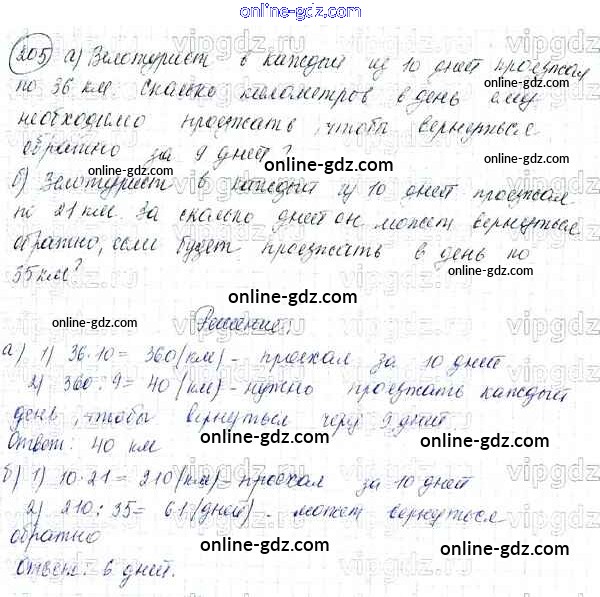 online-gdz.com
205 а) Велотурист в каждый из 10 дней проезжал
по 36 км. Сколько километров в день ему
необходимо проезжать, чтобы вернуться
обратно за 9 дней?
online-gdz.com
б) Велотурист в каждый из 10 дней проезжал
по 21 км. За сколько дней он может вернуться
обратно, если будет проезжать в день по
35 км?
online-gdz.com
Решение:
а) 1) 36·10 = 360 (км) - проехал за 10 дней
2) 360 : 9 = 40 (км) - нужно проезжать каждый
день, чтобы вернуться через 9 дней
Ответ: 40 км
online-gdz.com
б) 1) 10·21 = 210 (км) - проехал за 10 дней
2) 210 : 35 = 6 (дней) - может вернуться
обратно
online-gdz.com
Ответ: 6 дней.